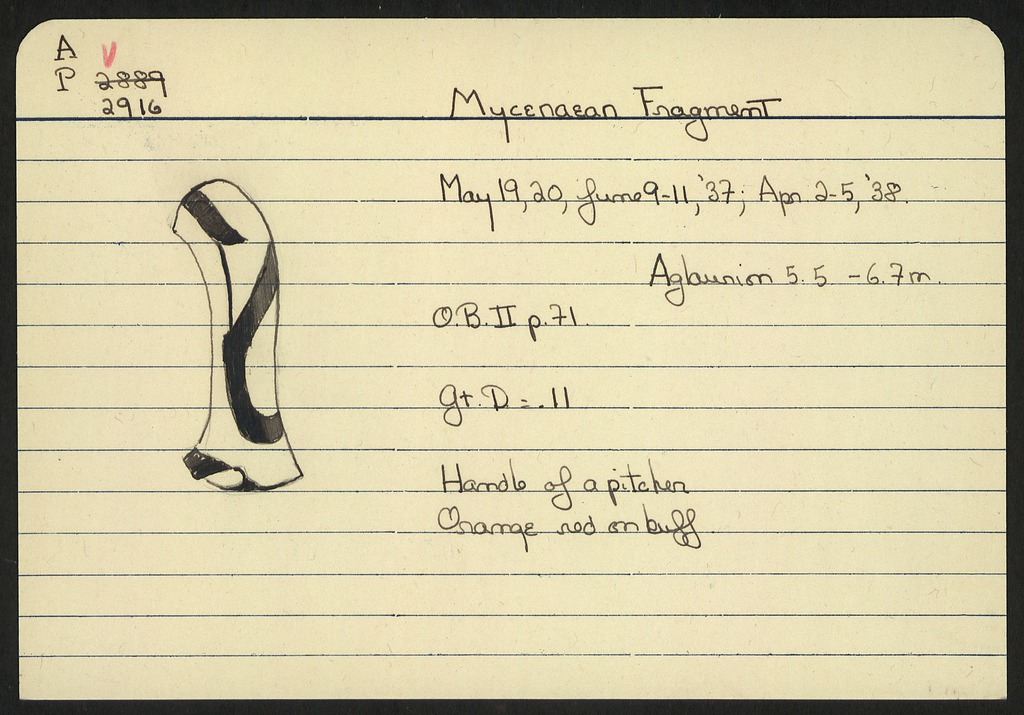 A V
P 2889
2916
Mycenaean Fragment
May 19, 20, June 9-11, '37; Apr. 2-5, '38.
Aglaurion 5.5 - 6.7m.
O.B. II p.71.
Gt. D = .11
Handle of a pitcher
Orange red on buff